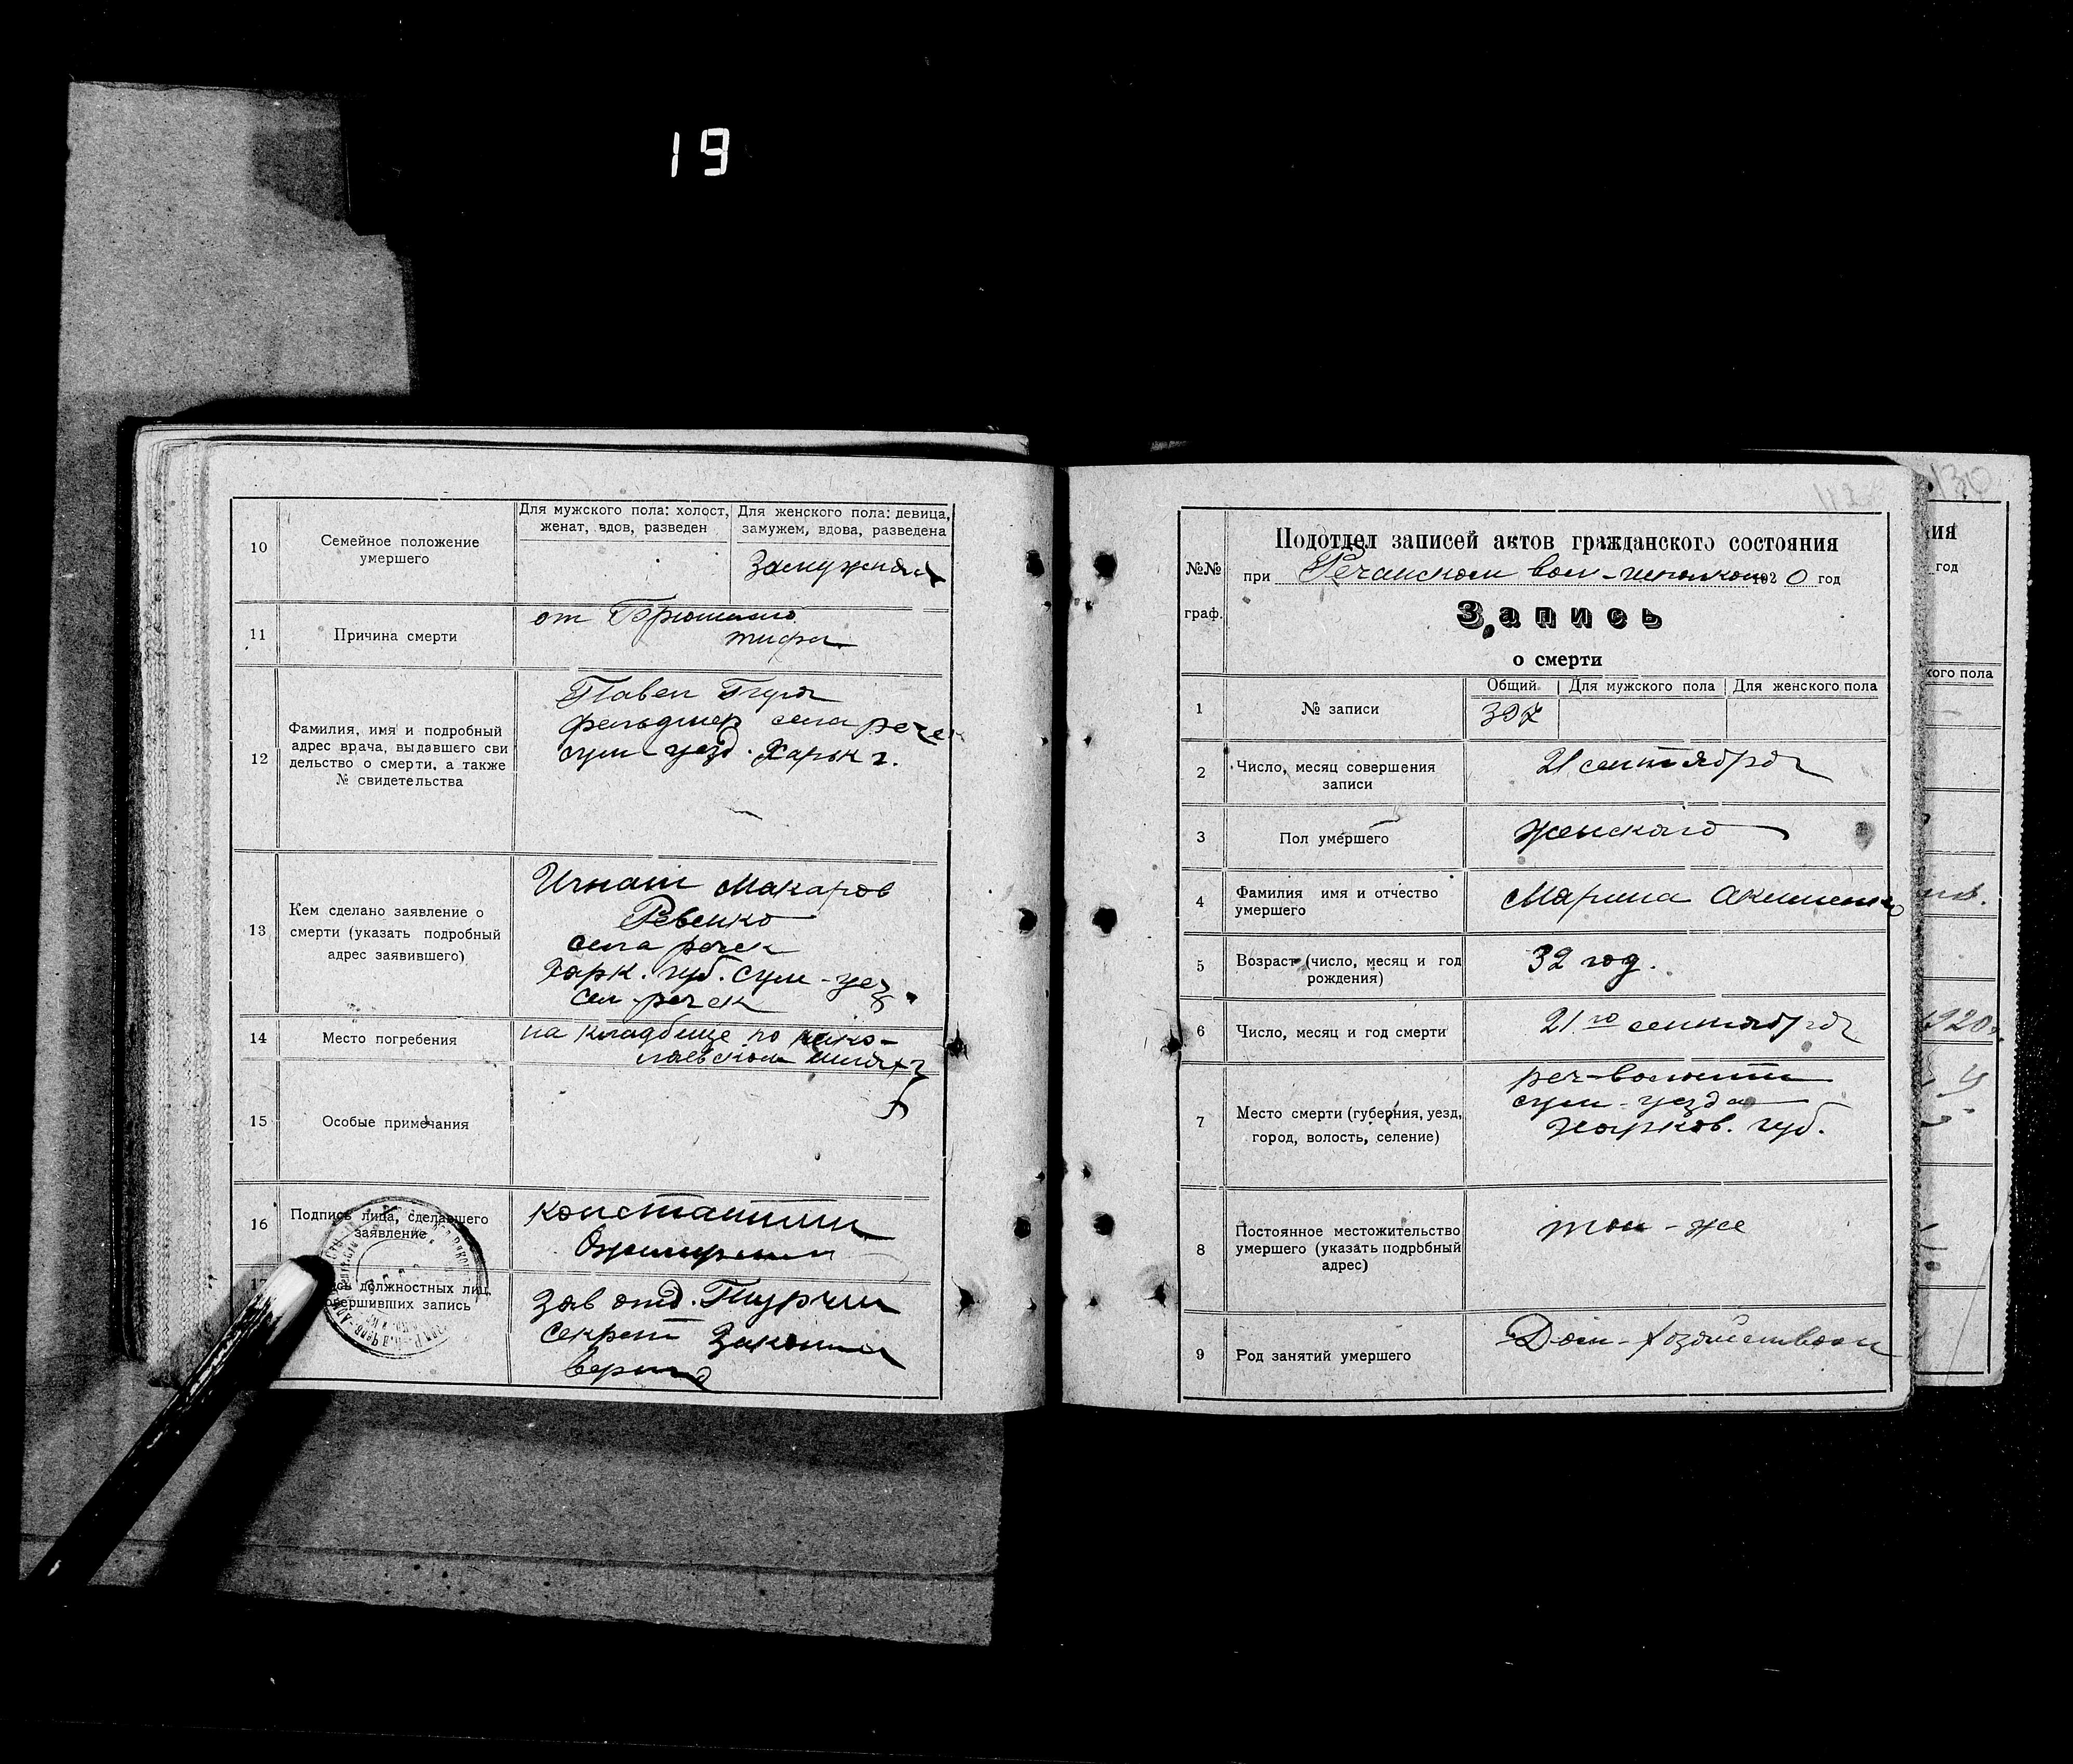 19
10
Семейное положение
умершего
Для мужского пола: холост,
женат, вдов, разведен
Для женского пола: девица,
замужем, вдова, разведена
Замужняя
11
Причина смерти
от Брюшного
тифа
12
Фамилия, имя и подробный
адрес врача, выдавшего сви
дельство о смерти, а также
№ свидетельства
Павел
фельдшер села речек
сум-уезд. Харьк г.
13
Кем сделано заявление о
смерти (указать подробный
адрес заявившего)
Игнат Макаров
Ревенко
села речек
Харк. губ. сум-уез
сел-речек
14
Место погребения
на кладбище по нико-
лаевском
15
Особые примечания
16
Подпись лица, сделавшего
заявление
Константин
17
должностных лиц,
совершивших запись
Зав отд.
секрет
верно
130
№№
граф.
Подотдел записей актов гражданского состояния
при Речанском вол-исполком 1920 год
Запись
о смерти
1
№ записи
Общий
Для мужского пола
Для женского пола
397
2
Число, месяц совершения
записи
21 сентября
3
Пол умершего
женского
4
Фамилия имя и отчество
умершего
Марина Акименко
5
Возраст (число, месяц и год
рождения)
32 год.
6
Число, месяц и год смерти
21го сентября
7
Место смерти (губерния, уезд,
город, волость, селение)
реч-волости
сум-уезда
харков. губ.
8
Постоянное местожительство
умершего (указать подробный
адрес)
там-же
9
Род занятий умершего
Дом-хозяйством
ия
год
кого пола
1920